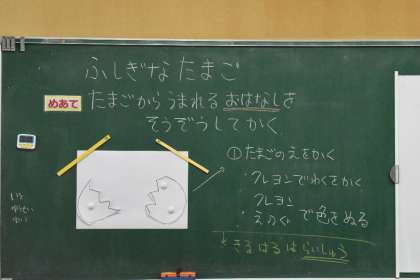 ふしぎなたまご
めあて
たまごからうまれるおはなしを
そうぞうしてかく
①たまごのえをかく
・クレヨンでわくをかく
クレヨン
・えのぐで色をぬる
きるはるはらいしゅう